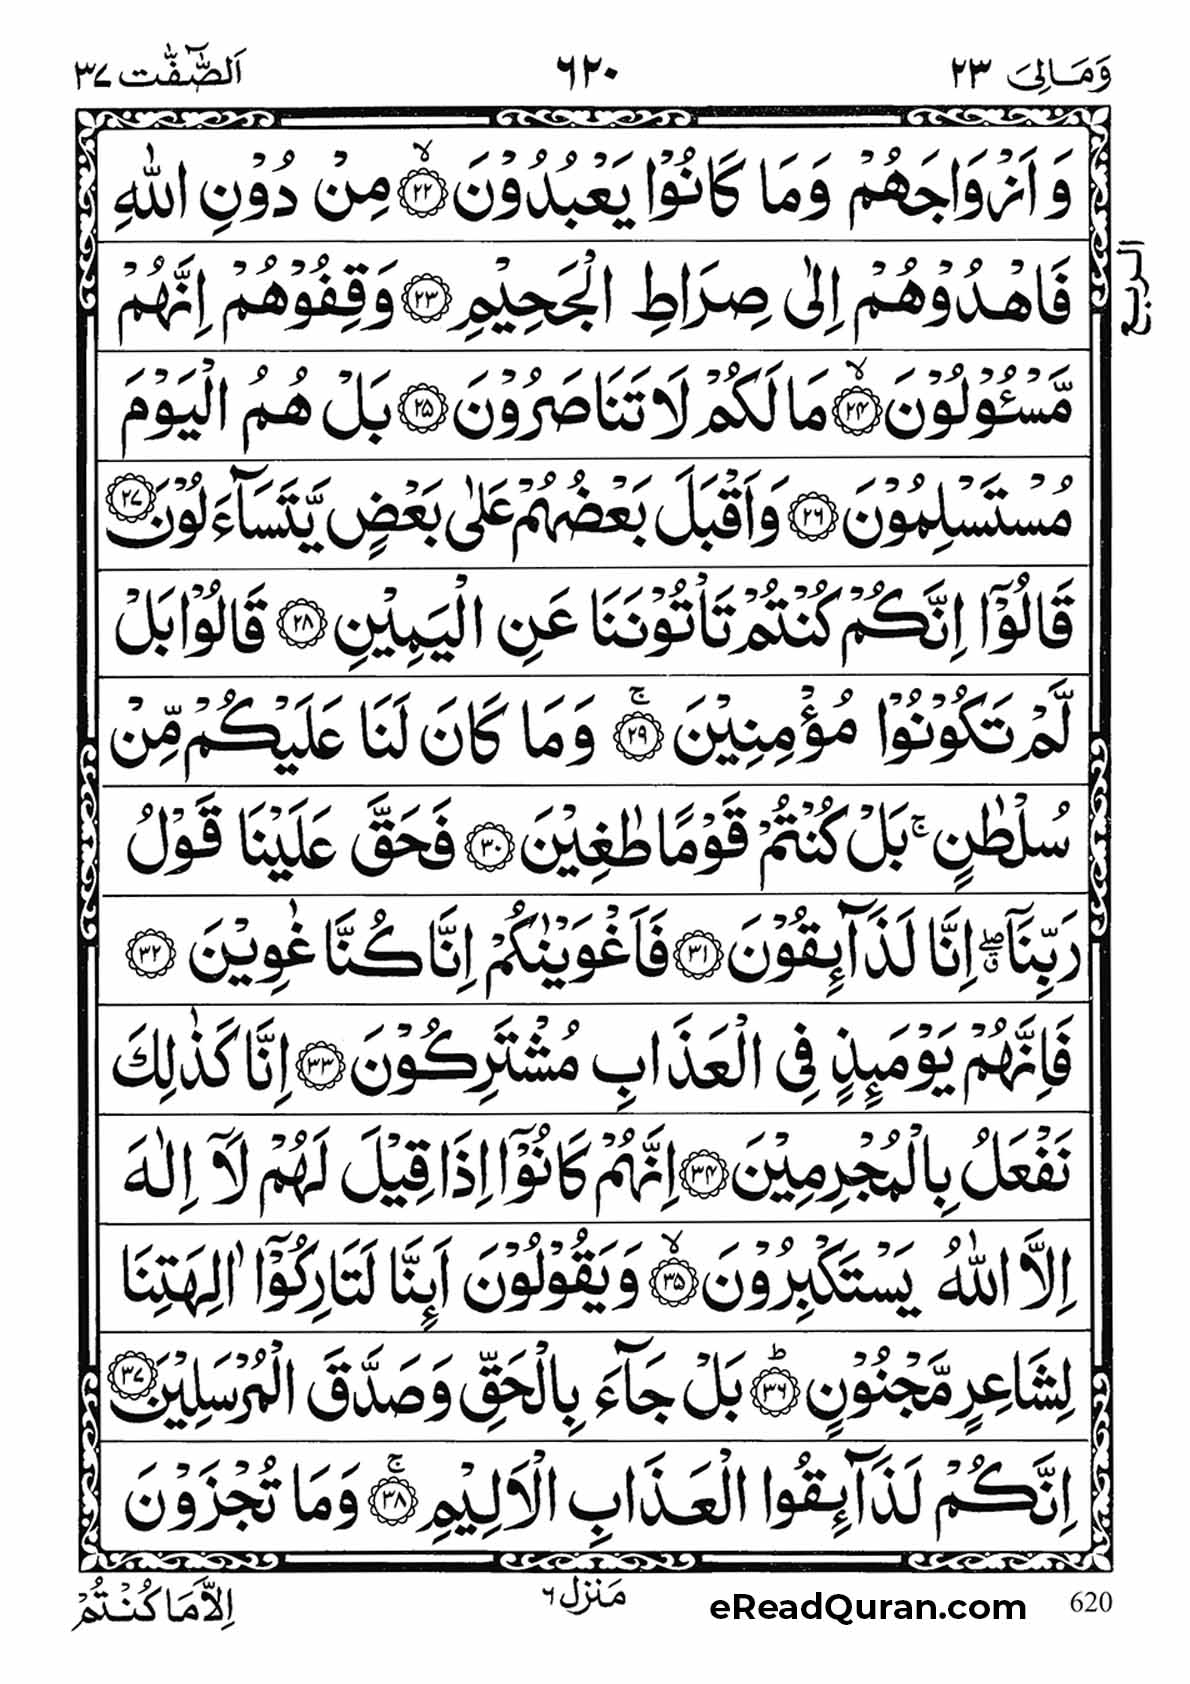 وَمَالِیَ ٢٣ ٦٢٠ اَلصّٰٓفّٰت ٣٧
وَ اَزْوَاجَهُمْ وَمَا كَانُوْا يَعْبُدُوْنَ ۙ‏﴿٢٢﴾ مِنْ دُوْنِ اللّٰهِ
فَاهْدُوْهُمْ اِلٰى صِرَاطِ الْجَحِيْمِ ﴿٢٣﴾ وَقِفُوْهُمْ اِنَّهُمْ
الربع
مَّسْـُٔوْلُوْنَ ۙ‏﴿٢٤﴾ مَا لَكُمْ لَا تَنَاصَرُوْنَ ﴿٢٥﴾ بَلْ هُمُ الْيَوْمَ
مُسْتَسْلِمُوْنَ ﴿٢٦﴾ وَاَقْبَلَ بَعْضُهُمْ عَلٰى بَعْضٍ يَّتَسَآءَلُوْنَ ﴿٢٧﴾
قَالُوْٓا اِنَّكُمْ كُنْتُمْ تَاْتُوْنَنَا عَنِ الْيَمِيْنِ ﴿٢٨﴾ قَالُوْا بَلْ
لَّمْ تَكُوْنُوْا مُؤْمِنِيْنَ ۚ‏﴿٢٩﴾ وَمَا كَانَ لَنَا عَلَيْكُمْ مِّنْ
سُلْطٰنٍ ۚ بَلْ كُنْتُمْ قَوْمًا طٰغِيْنَ ﴿٣٠﴾ فَحَقَّ عَلَيْنَا قَوْلُ
رَبِّنَآ ۖۗ اِنَّا لَذَآئِقُوْنَ ﴿٣١﴾ فَاَغْوَيْنٰكُمْ اِنَّا كُنَّا غٰوِيْنَ ﴿٣٢﴾
فَاِنَّهُمْ يَوْمَئِذٍ فِى الْعَذَابِ مُشْتَرِكُوْنَ ﴿٣٣﴾ اِنَّا كَذٰلِكَ
نَفْعَلُ بِالْمُجْرِمِيْنَ ﴿٣٤﴾ اِنَّهُمْ كَانُوْٓا اِذَا قِيْلَ لَهُمْ لَآ اِلٰهَ
اِلَّا اللّٰهُ يَسْتَكْبِرُوْنَ ۙ‏﴿٣٥﴾ وَيَقُوْلُوْنَ اَئِنَّا لَتَارِكُوْٓا اٰلِهَتِنَا
لِشَاعِرٍ مَّجْنُوْنٍ ؕ‏﴿٣٦﴾ بَلْ جَآءَ بِالْحَقِّ وَصَدَّقَ الْمُرْسَلِيْنَ ﴿٣٧﴾
اِنَّكُمْ لَذَآئِقُوا الْعَذَابِ الْاَلِيْمِ ۚ‏﴿٣٨﴾ وَمَا تُجْزَوْنَ
اِلَّا مَا كُنْتُمْ
مَنزل ٦
eReadQuran.com 620